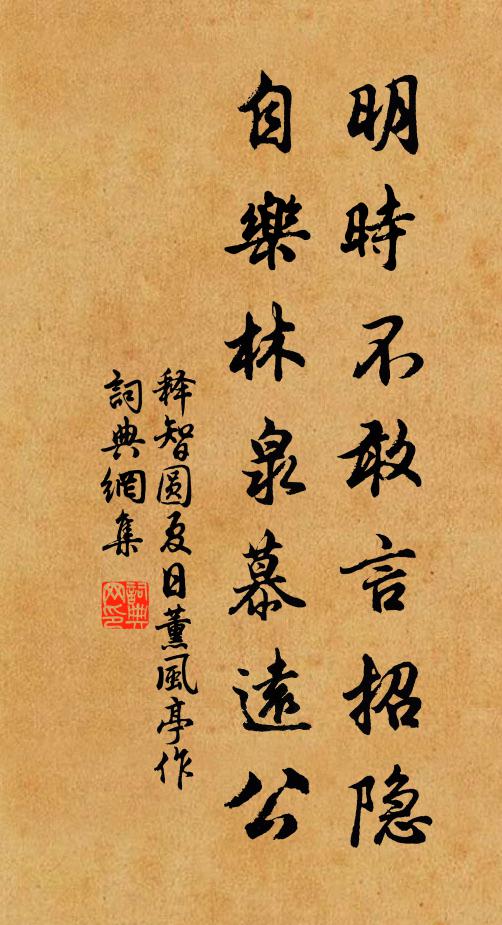 明時不敢言招隐
自樂林泉慕遠公
释智圆夏日薰風亭作
詞典網集
詞典
网印